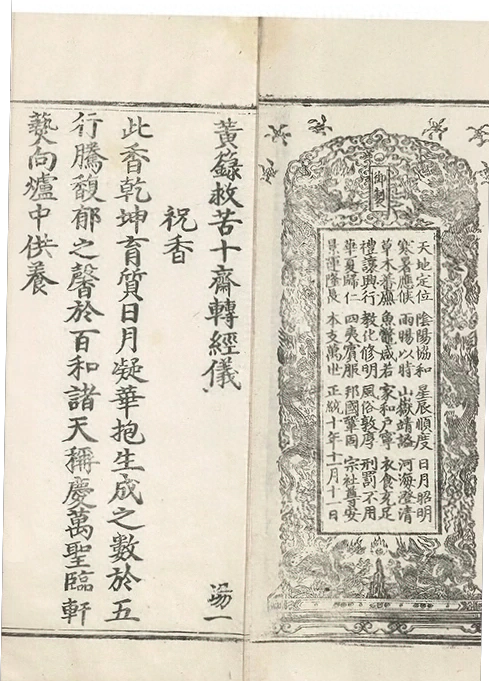 御製
天地定位 陰陽協和 星辰順度 日月昭明
寒暑應候 雨暘以時 山嶽靖謐 河海澄清
草木蕃廡 魚鱉咸若 家和户寧 衣食充足
禮讓興行 教化修明 風俗敦厚 刑罰不用
華夏歸仁 四夷賓服 邦國鞏固 宗社尊安
景運隆長 本支萬世 正統十年十一月十一日
黃籙救苦十齋轉經儀 塲一
祝香
此香乾坤育質日月凝華抱生成之數於五
行騰馥郁之馨於百和諸天稱慶萬聖臨軒
爇向爐中供養